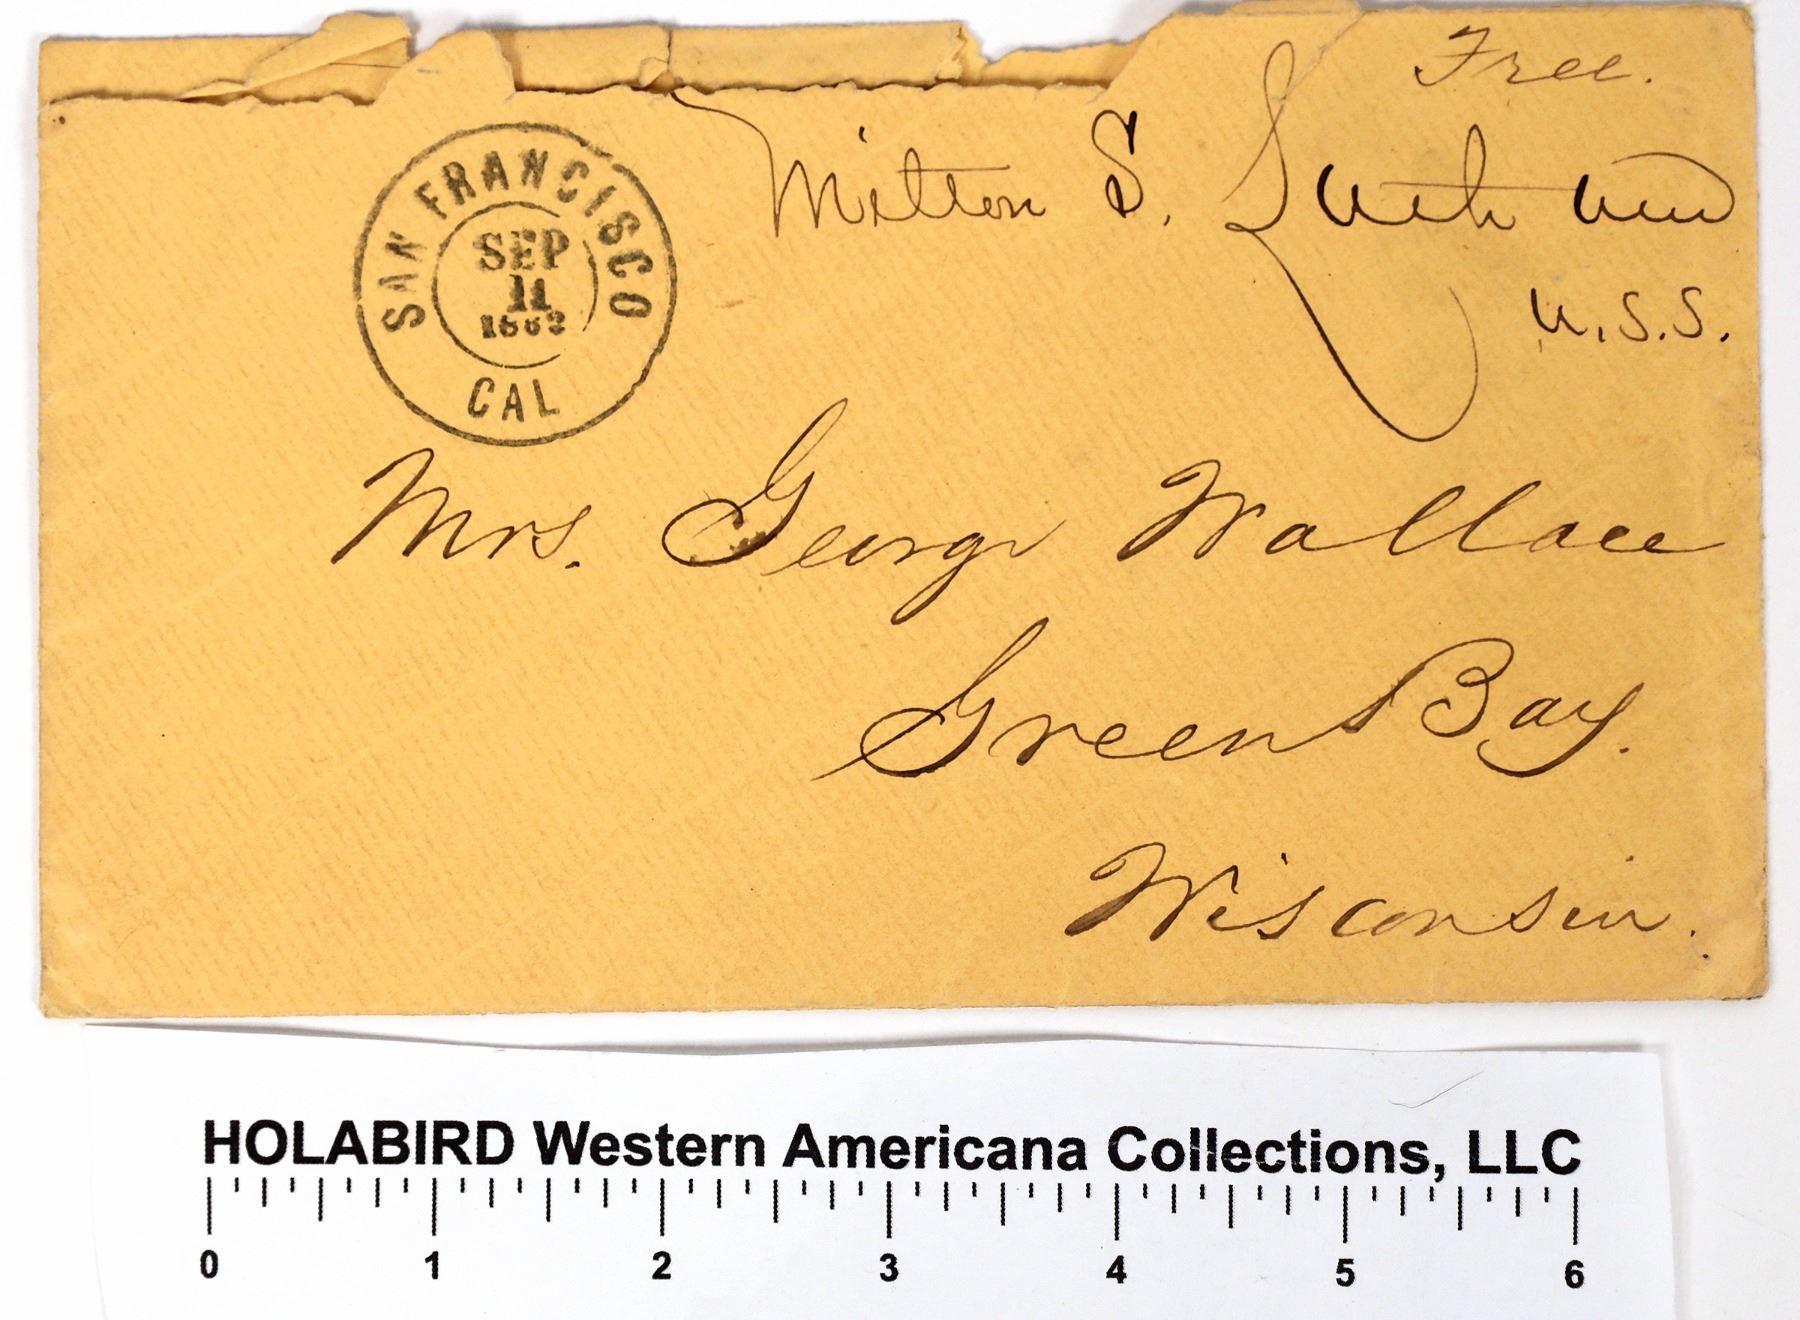 Free.
Milton S. Latham
U.S.S.
SAN FRANCISCO
SEP
11
CAL
Mrs. George Wallace
Green Bay.
Wisconsin.
HOLABIRD Western Americana Collections, LLC
0 1 2 3 4 5 6